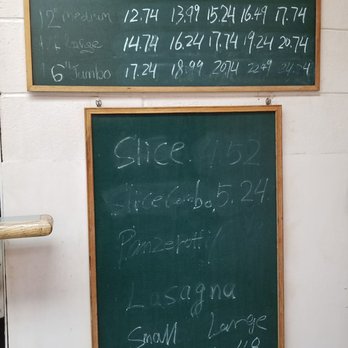 12" medium 12.74 13.99 15.24 16.49 17.74
large 14.74 16.24 17.74 19.24 20.74
16" Jumbo 17.24 18.99 20.74 22.49 24.24
Slice. 4.52
Slice Combo. 5.24
Panzerotti
Lasagna
Small Large